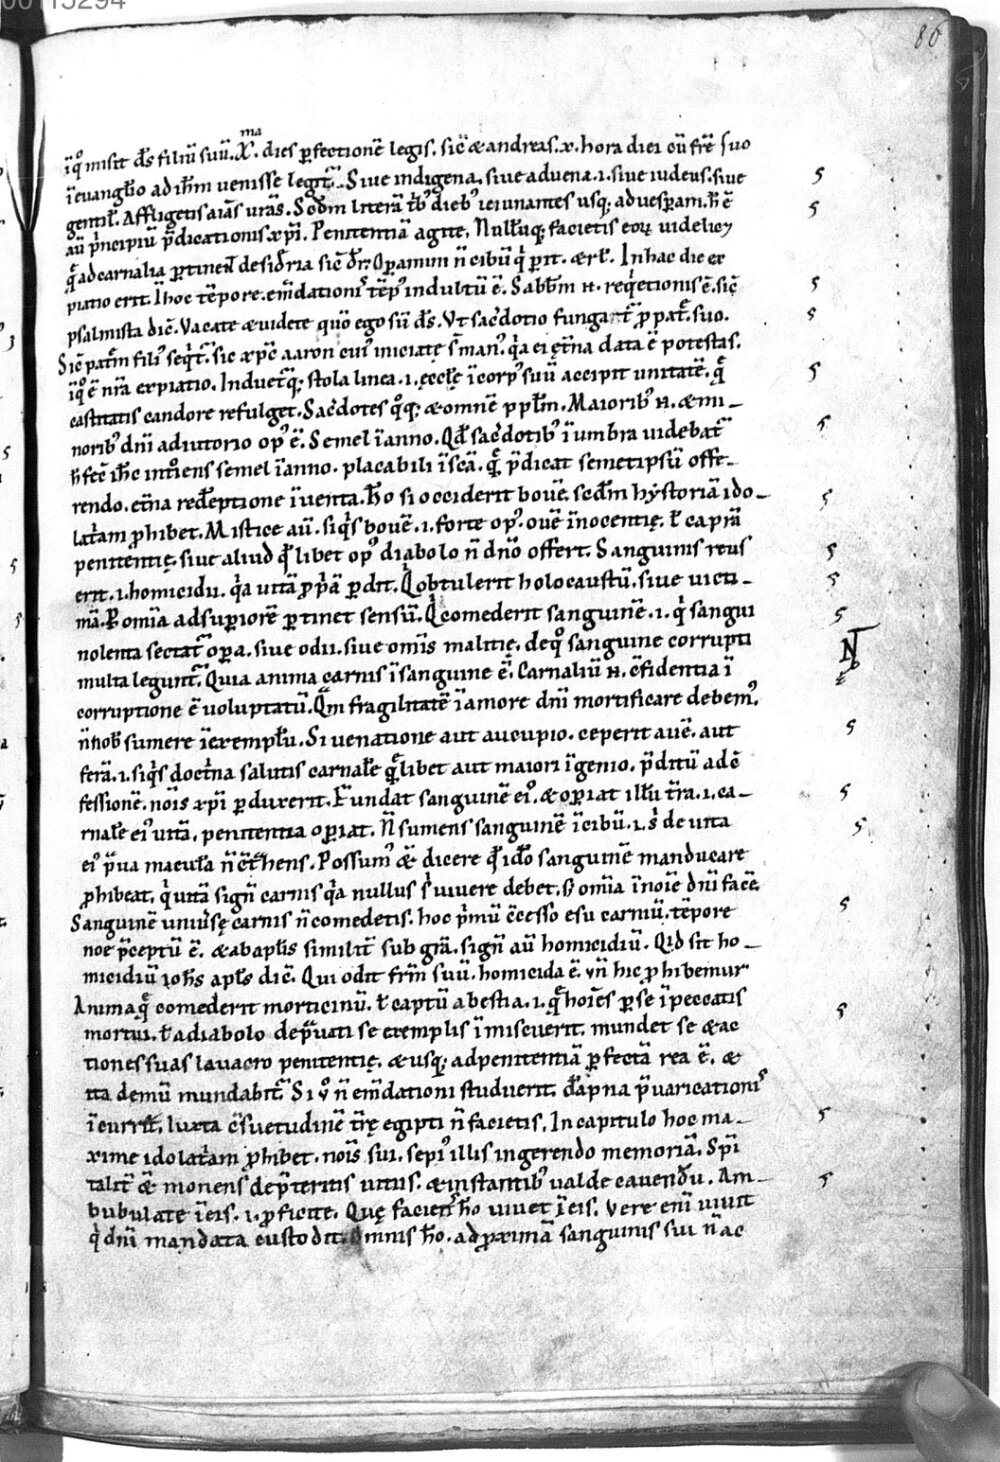 00113294
86
ma
īq̊ misit d̄s filiū suū. X. dies ꝑfectionē legis. sic̄ & andreas. x. hora diei cū fr̄e suo
ī euangl̄io ad ih̄m uenisse legit̃. Siue indigena. siue aduena .i. siue iudeus. siue
gentil̃. Affligetis aīas ur̄as. Scd̄m literā tb̾ diebꝰ ieiunantes usq; ad uesꝑam. h̄ ē
aū p̄ncipiū p̄dicationis xp̄i. Penitentiā agite. Null̄uq; facietis eoꝝ uidelicꝫ
q̄ ad carnalia ꝑtinen̄t desid̄ria sic̄ dr̄. Oꝑamini n̄ cibū q̇ ꝑit. & rl̄. In hac die ex
piatio erit. I hoc tēpore. em̄dationi᷒ tēpꝰ indultū ē. Sabb̄m n̄. req̇etionis ē. sic̄
psalmista dic̄. Vacate & uidete quō ego sū d̄s. Vt sac̄dotio fungat̃ ꝓ pat̄ suo.
Sic̄ patr̄m fili᷒ seq̇t̃. sic xp̄c aaron cui᷒ iniciatę s̄ man᷒. q̇a ei et̄na data ē potestas.
īq̊ ē nr̄a expiatio. Induet̃q; stola linea .i. ęccl̄ę ī corp᷒ suū accipit unitatē. q̄
castitatis candore refulget. Sac̄dotes q̊q; & omnē ppl̄m. Maiorib᷒ n̄. & mi-
norib᷒ dn̄i adiutorio op᷒ ē. Semel ī anno. Qd̄ sac̄dotib᷒ ī umbra uidebat̃
h̄ fec̄ ih̄c int̊iens semel ī anno. placabili ī sc̄ā. q̄ p̄dicat semetipsū offe-
rendo. et̄na red̄eptione īuenta. h̊ si occiderit bouē. scd̄m hystoriā ido-
lat̄am ꝓhibet. Mistice aū. siq̇s bouē .i. forte op᷒. ouē īnocentię. ł caprā
penitentię. siue aliud q̄ libet op᷒ diabolo n̄ dn̄o offert. Sanguinis reus
erit .i. homicidii. q̇a uitā ꝓpˊā ꝑdit. Q̇ obtulerit holocaustū. siue uicti-
mā. Ꝑ om̄ia ad suꝑiorē ꝑtinet sensū. Q̇ comederit sanguinē .i. q̇ sangui
nolenta sectat̃ oꝑa. siue odii. siue om̄is malitię. de q̊ sanguine corrupti
multa legunt̃. Quia anima carnis ī sanguine ē. Carnaliū n̄. c̄fidentia ī
corruptione ē uoluptatū. Q̄m fragilitatē ī amore dn̄i mortificare debem᷒.
n̄ nob̄ sumere ī exempl̄u. Si uenatione aut aucupio. ceperit auē. aut
ferā .i. siq̇s doct̄na salutis carnal̄e q̄libet aut maiori īgenio. p̄ditū ad c̄
fessionē. noīs xp̄i ꝑduxerit. Fundat sanguinē ei᷒. & oꝑiat ill̄u t̄ra .i. ca-
rnal̄e ei᷒ uitā. penitentia oꝑiat. N̄ sumens sanguinē ī cibū .i. s̄ de uita
ei᷒ p̄ua macul̄a n̄ c̄t̄hens. Possum᷒ & dicere q̄ id̊ sanguinē manducare
ꝓhibeat. q̇ uitā sign̄ carnis q̇a nullus ṡ uiuere debet. s̄ om̄ia ī noīe dn̄i fac̄e.
Sanguinē uniu̾sę carnis n̄ comedetis. hoc ṗmū c̄cesso esu carniū. tēpore
noe p̄ceptū ē. & a baptis̄ similit̃ sub grā. sign̄ aū homicidiū. Qid sit ho-
micidiū ioh̄s apl̄s dic̄. Qui odit fr̄m suū. homicida ē. un̄ hic ꝓhibemur
Anima q̄ comederit morticinū. ł captū a bestia .i. q̄ hoīes ꝑ se ī peccatis
mortui. ł a diabolo dep̄uati se exemplis īmiscuerit. mundet se & ac
tiones suas lauacro penitentię. & usq; ad penitentiā ꝑfectā rea ē. &
ita demū mundabit̃. Si u̾ n̄ em̄dationi studuerit. dāpna p̄uarication᷒
īcurrit. Iuxta c̄suetudinē t̄rę egipti n̄ facietis. In capitulo hoc ma-
xime idolat̄am ꝓhibet. noīs sui. sepi᷒ illis ingerendo memoriā. Spī
talit̃ & monens de p̄teritis uitiis. & instantib᷒ ualde cauend̄u. Am-
bubulate ī eis .i. ꝓficite. Quę faciens h̊ uiuet ī eis. Vere eni̅ uiuit
q̇ dn̄i mandata custodit. Omnis h̊. ad ꝓximā sanguinis sui n̄ ac